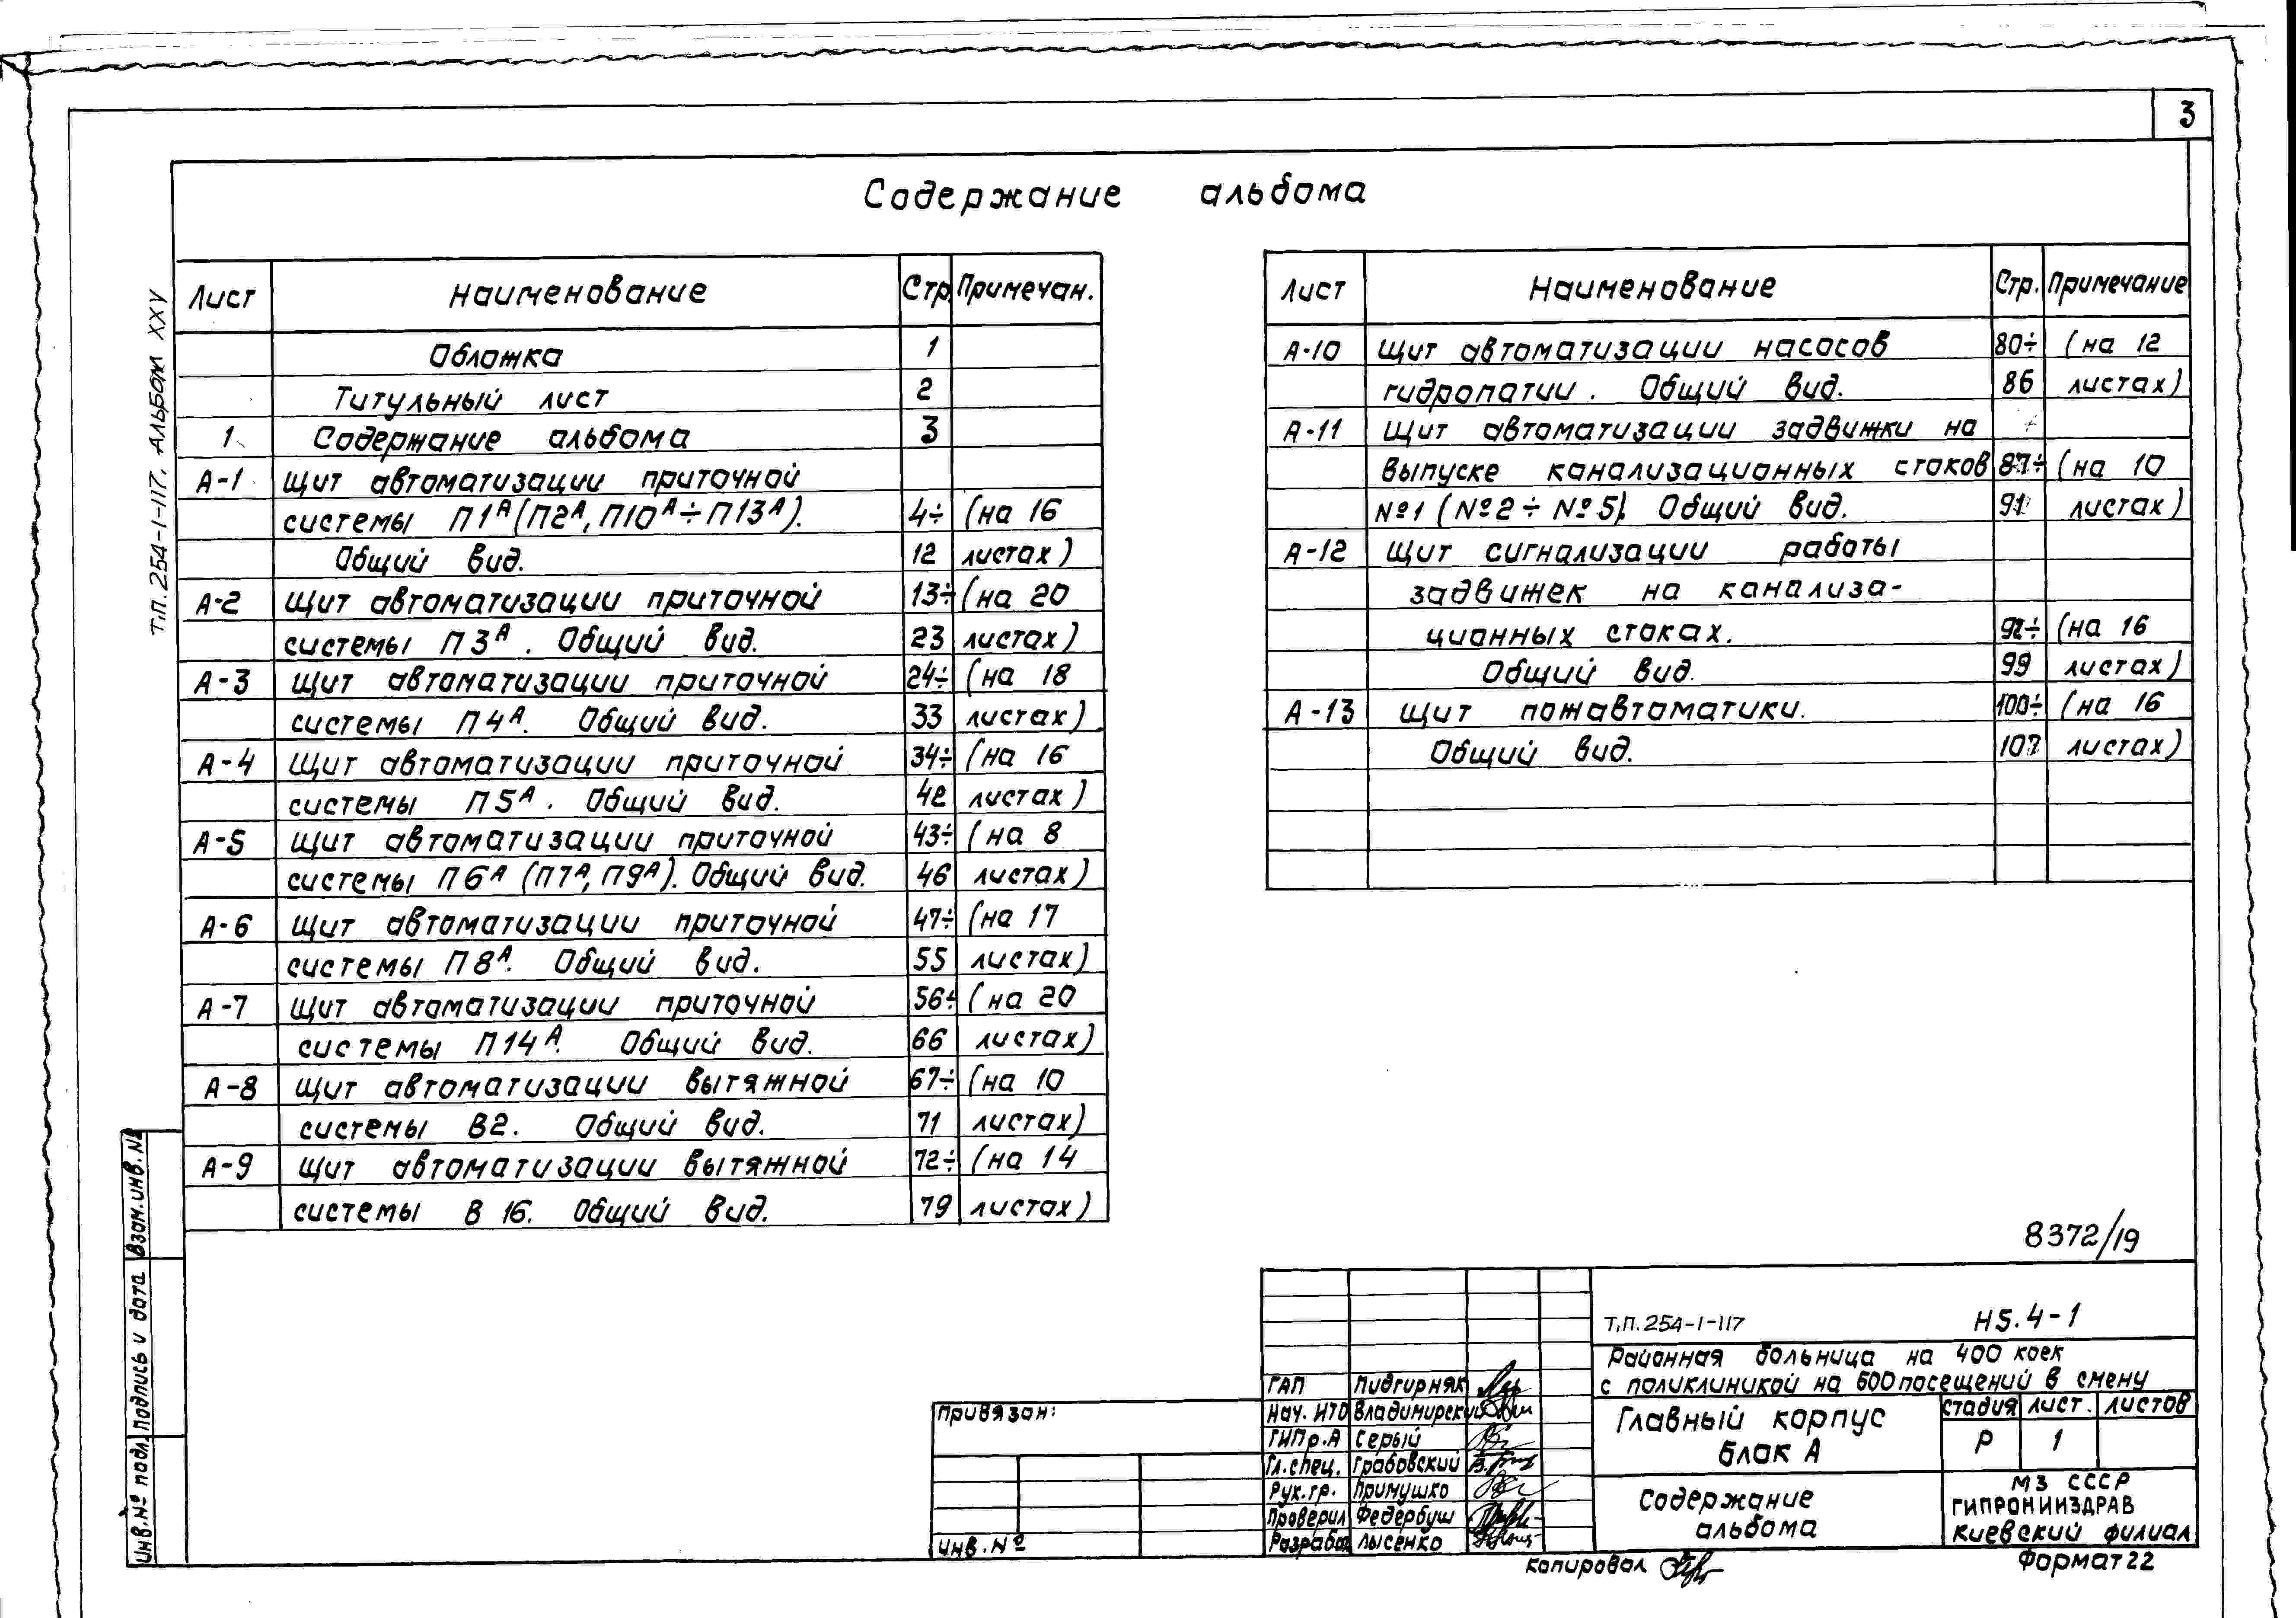 3
Содержание альбома
Т.П. 254-1-117. АЛЬБОМ XXV
Лист Наименование Стр. Примечан.
Обложка 1
Титульный лист 2
1 Содержание альбома 3
А-1 Щит автоматизации приточной
системы П1А (П2А, П10А÷П13А). 4÷ (на 16
Общий вид. 12 листах)
А-2 Щит автоматизации приточной 13÷ (на 20
системы П3А. Общий вид. 23 листах)
А-3 Щит автоматизации приточной 24÷ (на 18
системы П4А. Общий вид. 33 листах)
А-4 Щит автоматизации приточной 34÷ (на 16
системы П5А. Общий вид. 42 листах)
А-5 Щит автоматизации приточной 43÷ (на 8
системы П6А (П7А, П9А). Общий вид. 46 листах)
А-6 Щит автоматизации приточной 47÷ (на 17
системы П8А. Общий вид. 55 листах)
А-7 Щит автоматизации приточной 56÷ (на 20
системы П14А. Общий вид. 66 листах)
А-8 Щит автоматизации вытяжной 67÷ (на 10
системы В2. Общий вид. 71 листах)
А-9 Щит автоматизации вытяжной 72÷ (на 14
системы В 16. Общий вид. 79 листах)
Лист Наименование Стр. Примечание
А-10 Щит автоматизации насосов 80÷ (на 12
гидропатии. Общий вид. 86 листах)
А-11 Щит автоматизации задвижки на
выпуске канализационных стоков 87÷ (на 10
№1 (№2÷№5). Общий вид. 91 листах)
А-12 Щит сигнализации работы
задвижек на канализа-
ционных стоках. 92÷ (на 16
Общий вид. 99 листах)
А-13 Щит пожавтоматики. 100÷ (на 16
Общий вид. 107 листах)
8372/19
Взам.инв.№
Подпись и дата
Инв.№ подл.
Привязан:
Инв.№
ГАП Пидгирняк
Нач. ИТО Владимирский
ГИПр.А Серый
Гл.спец. Грабовский
Рук.гр. Примушко
Проверил Федербуш
Разработ. Лысенко
Т.П.254-1-117 Н5.4-1
Районная больница на 400 коек
с поликлиникой на 600 посещений в смену
Главный корпус
блок А
Стадия Лист. Листов
Р 1
Содержание
альбома
МЗ СССР
ГИПРОНИИЗДРАВ
Киевский филиал
Копировал
Формат 22